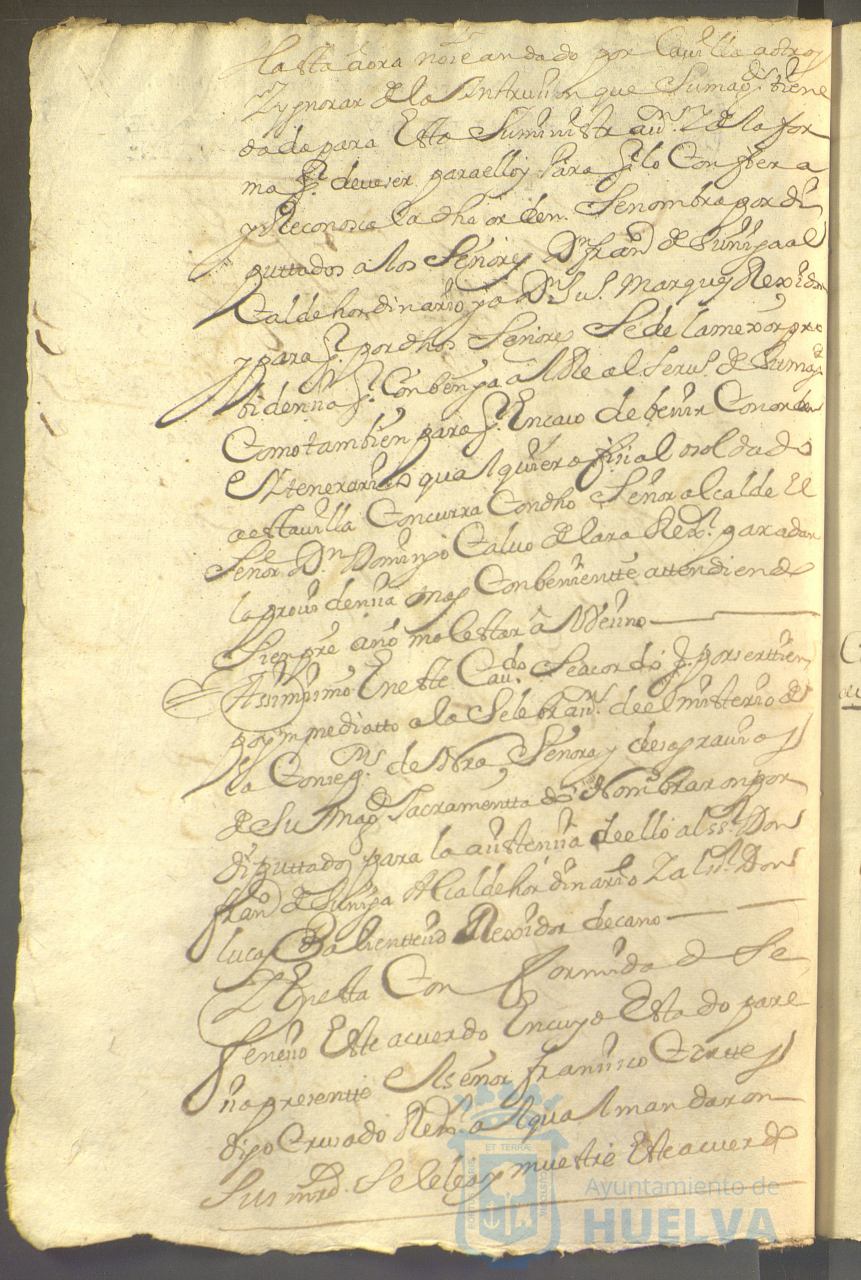 hasta aora no se an dado por Cavilda a otros
Ygnorar de la Yntruuion que Sumagd. tiene
dada para Esta Suministraun. Y de la for
ma q. deve ser para ello y Para q. lo Confiera
y Reconosca la dha orden. Se nombra por di
puttados a los Señores Dn. fran.co de Suniga al
Calde hordinario y a Dn. Ju.o Marques Rexidor
y para q. por dhos Señores Se de la mexor pro
bidennia q. Conbenga a l Real Servo. de Sumagd.
Como tambien para q. En caso de benir Con orden
e Ytenerario qualquiera ofisial o soldado
a esta villa Concurra Con dho Señor alcalde El
Señor Dn. Domingo Calvo de lara Rexr. para dar
la providenuia mas Conbenientte attendiendo
Siempre a no molestar a l Veuno
Assimismo En este Cavdo. Se acordo q. por ser ttiem
po ynmediatto a la Selebraun. de el misterio de
la Conzepn. de Nra Señora y desagravios
de Su Magd. Sacramenttado Nombraron por
diputtados para la asistenuia de ello al Sr. Don
fran.co de Suniga Alcalde hordinario Y al Sr. Don
lucas Balientte Rexidor decano
Y En esta Conformidad Se
feneuio Este acuerdo En cuyo Estado pare
uio presentte el Señor franuisco Corttes
digo Crusado Rexr. al qual mandaron
Sus mrds. Se le lea y muestre Este acuerdo
Ayuntamiento de
HUELVA